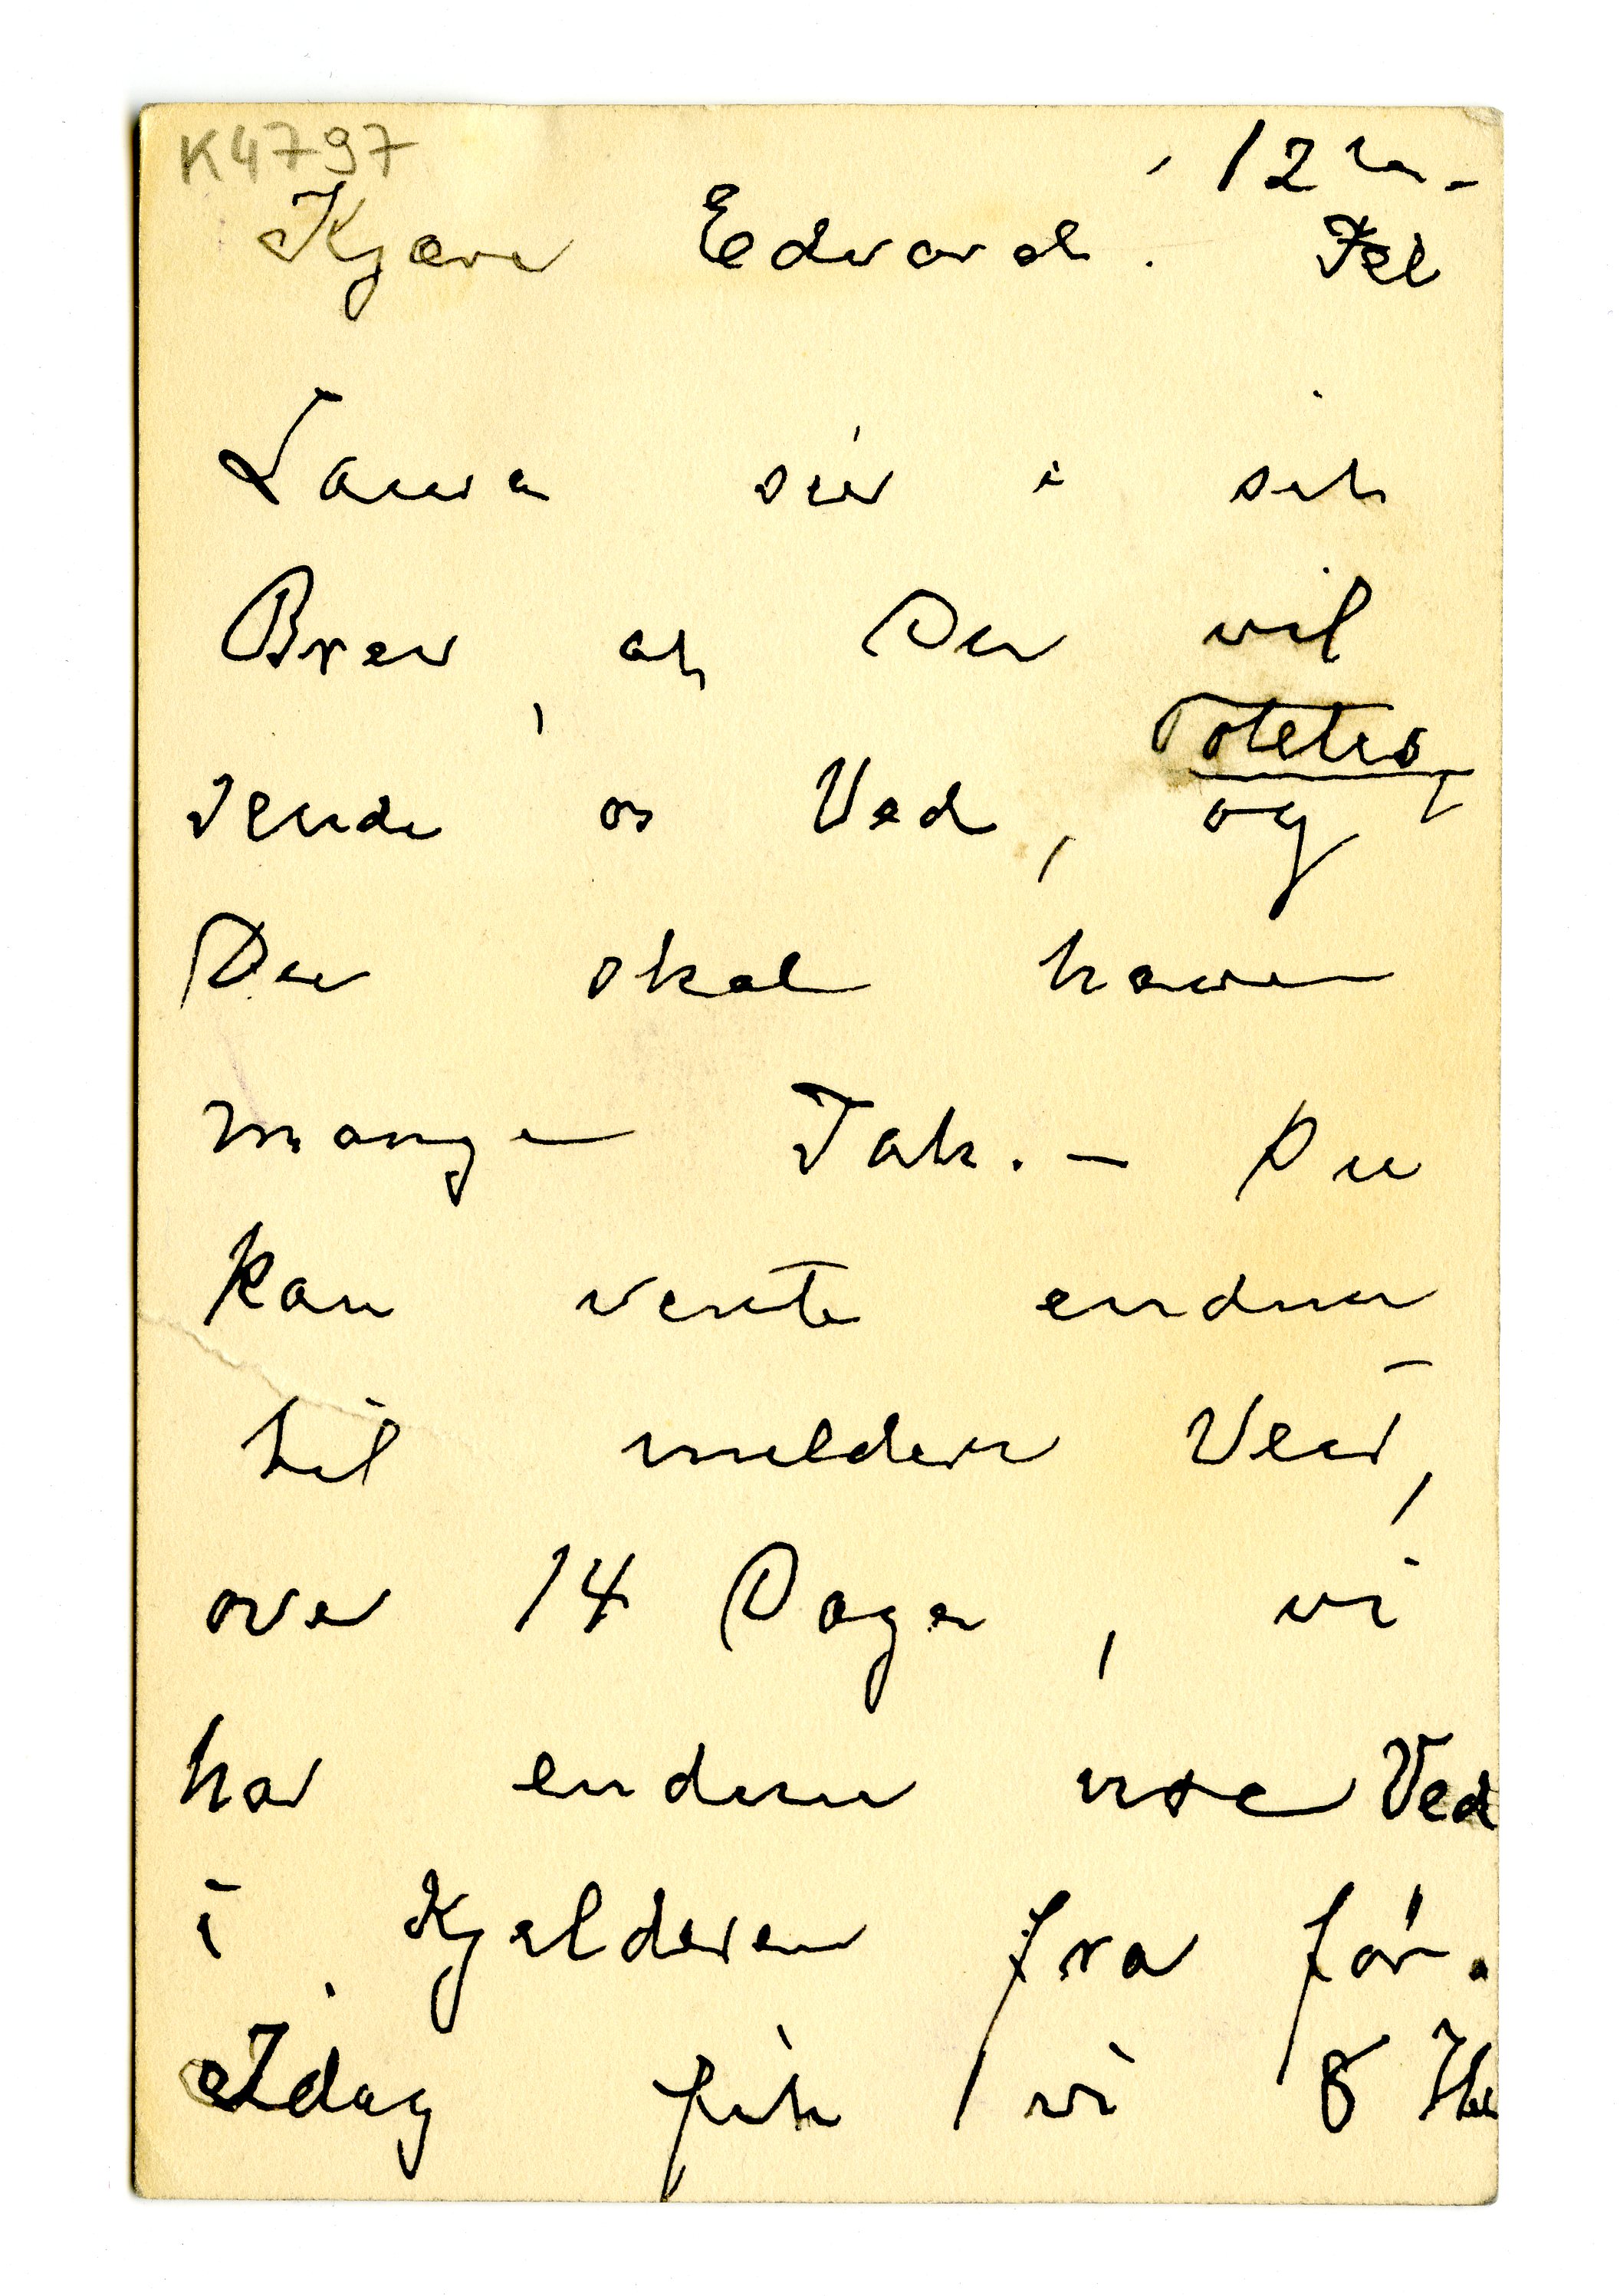 K4797
12te
Kjære Edvard. Feb
Laura sier i sit
Brev, at Du vil
Poteter
sende os Ved, og
Du skal have
mange Tak. – Du
kan vente endnu
til mildere Veir,
over 14 Dage, vi
har endnu noe Ved
i Kjelderen fra før.
Idag fik vi 8